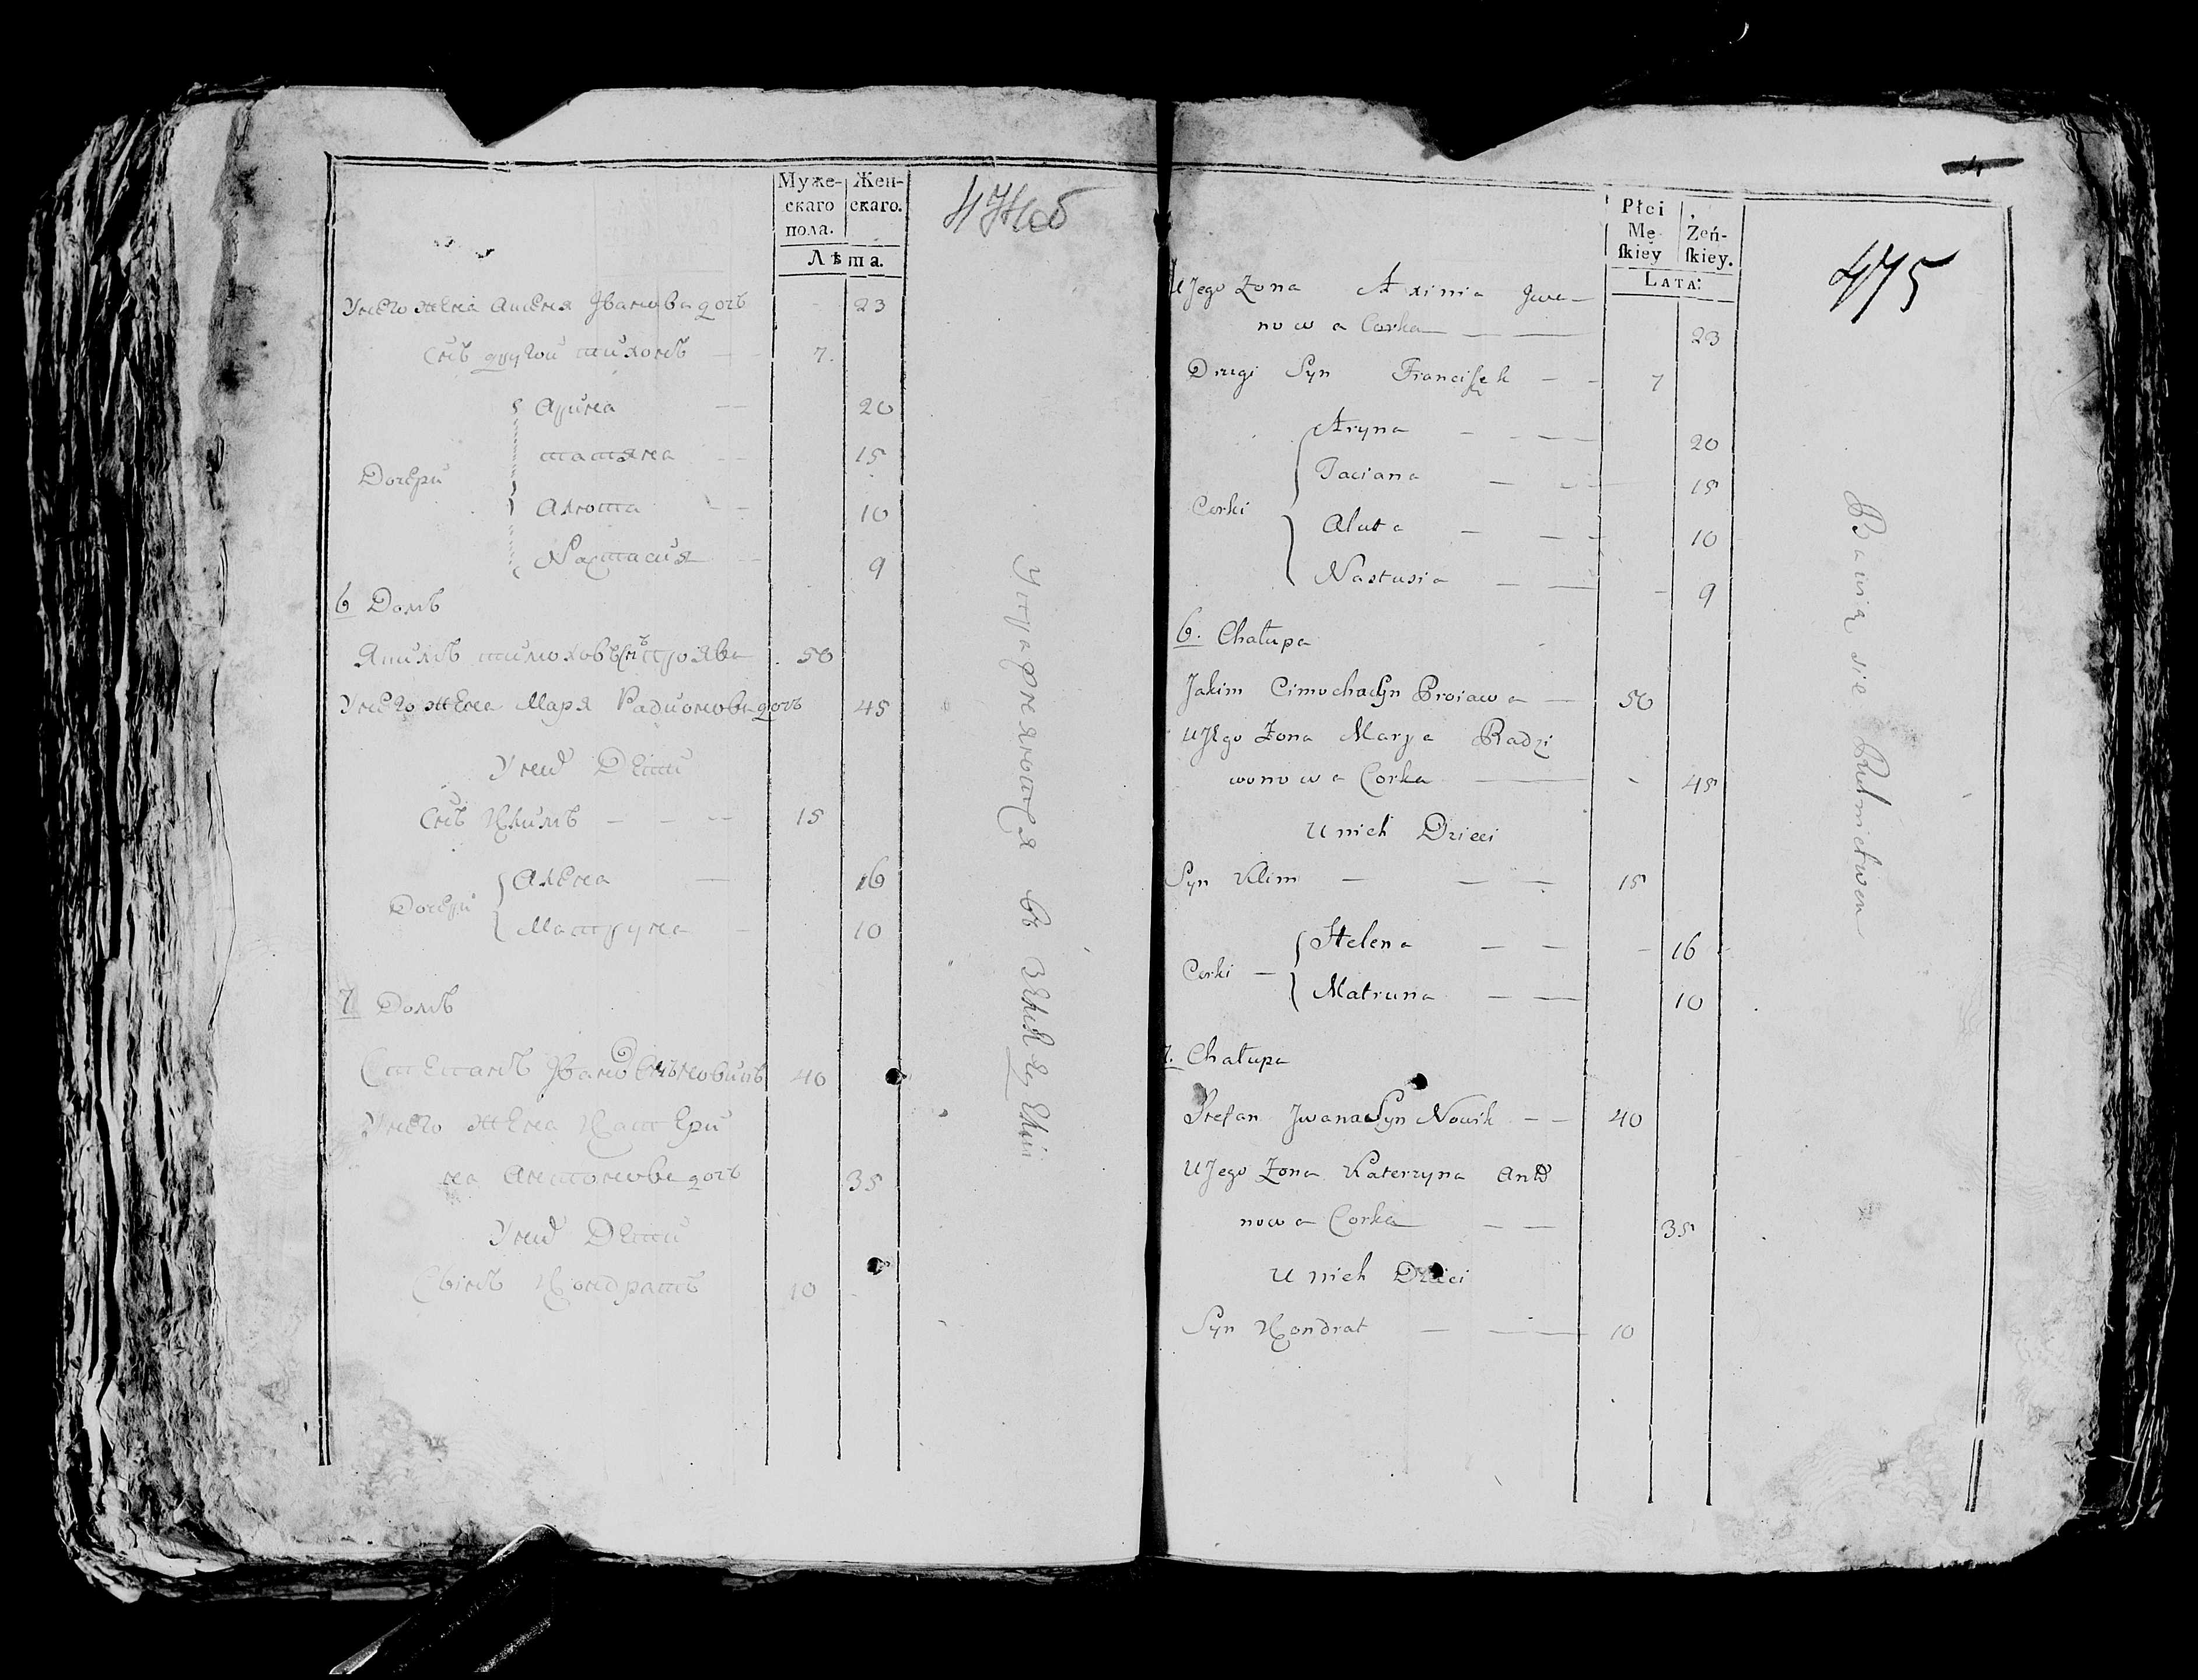 Муже-
скаго
пола.
Жен-
скаго.
Лѣта.
474об
Унего жена Ивановна дочь 23
Снъ другой 7.
Дочери
Арина 20
татяна 15
Алюта 10
Настасия 9
6 Домъ
Якимъ тимоховъ снъ троява 50
Унего жена Маря Радионова дочь 45
Унихъ Дети
Снъ Клим 15
Дочери
Алена 16
Матруна 10
7 Домъ
Степанъ Ивановъ снъ новикъ 40
Унего жена Катери
на Антонова дочь 35
Унихъ Дети
Сынъ Кондратъ 10
Упражняются въ
Płci
Mę-
ſkiey
Żeń-
ſkiey.
LATA:
475
UJego Zona Axinia Jwa-
nowa Corka 23
Drugi Syn Franciſzek 7
Corki
Aryna 20
Taciana 15
Aluta 10
Nastusia 9
6. Chałupa
Jakim Cimocha Syn Proiawa 50
UJEgo Zona Marya Radzi
wonowa Corka 45
U nich Dzieci
Syn Klim 15
Corki
Helena 16
Matruna 10
7. Chałupa
Stefan Jwana Syn Nowik 40
UJego Zona Katerzyna Anto
nowa Corka 35
U nich Dzieci
Syn Kondrat 10
Bawią się Rulnictwem